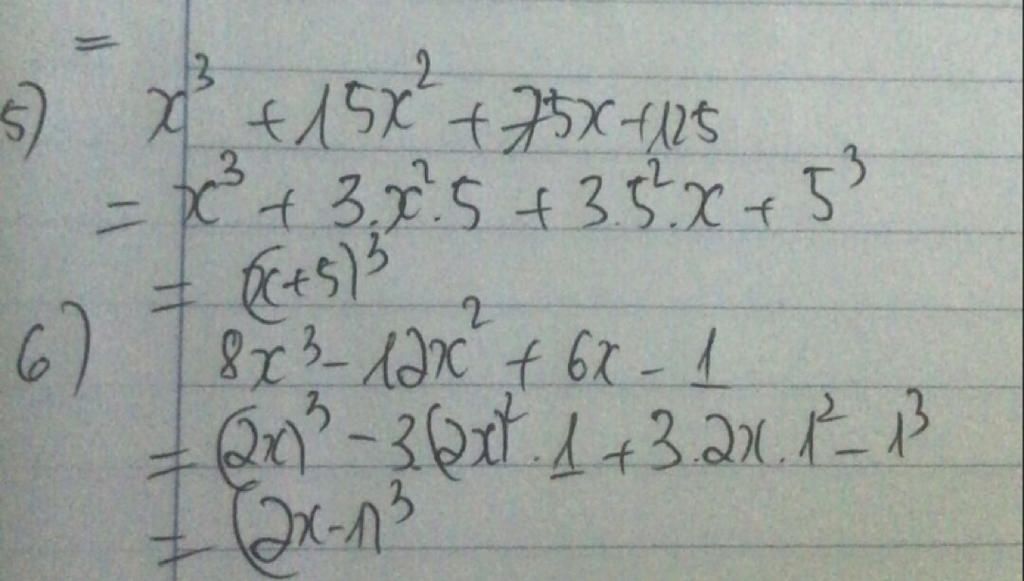 =
5) x³ + 15x² + 75x + 125
= x³ + 3.x².5 + 3.5².x + 5³
= (x+5)³
6) 8x³ - 12x² + 6x - 1
= (2x)³ - 3.(2x)².1 + 3.2x.1² - 1³
= (2x-1)³